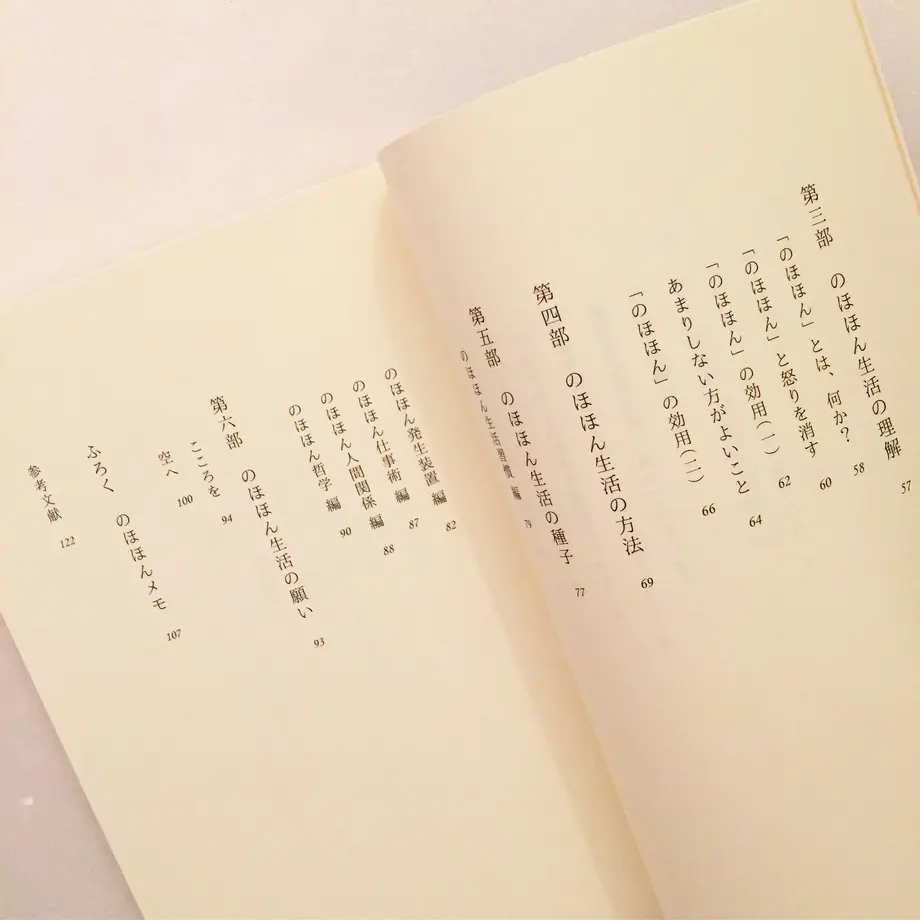 第三部 のほほん生活の理解 57
「のほほん」とは、何か? 58
「のほほん」と怒りを消す 60
「のほほん」の効用(一) 62
あまりしない方がよいこと 64
「のほほん」の効用(二) 66
第四部 のほほん生活の方法 69
第五部 のほほん生活の種子 77
のほほん生活習慣 編 79
のほほん発生装置 編 82
のほほん仕事術 編 87
のほほん人間関係 編 88
のほほん哲学 編 90
第六部 のほほん生活の願い 93
こころを 94
空へ 100
ふろく のほほんメモ 107
参考文献 122